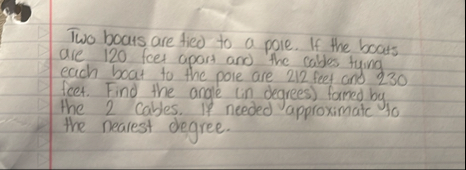 Two boats are tied to a pole. If the boats
are 120 feet apart and the cables tying
each boat to the pole are 212 feet and 230
feet. Find the angle (in degrees) formed by
the 2 cables. If needed approximate to
the nearest degree.